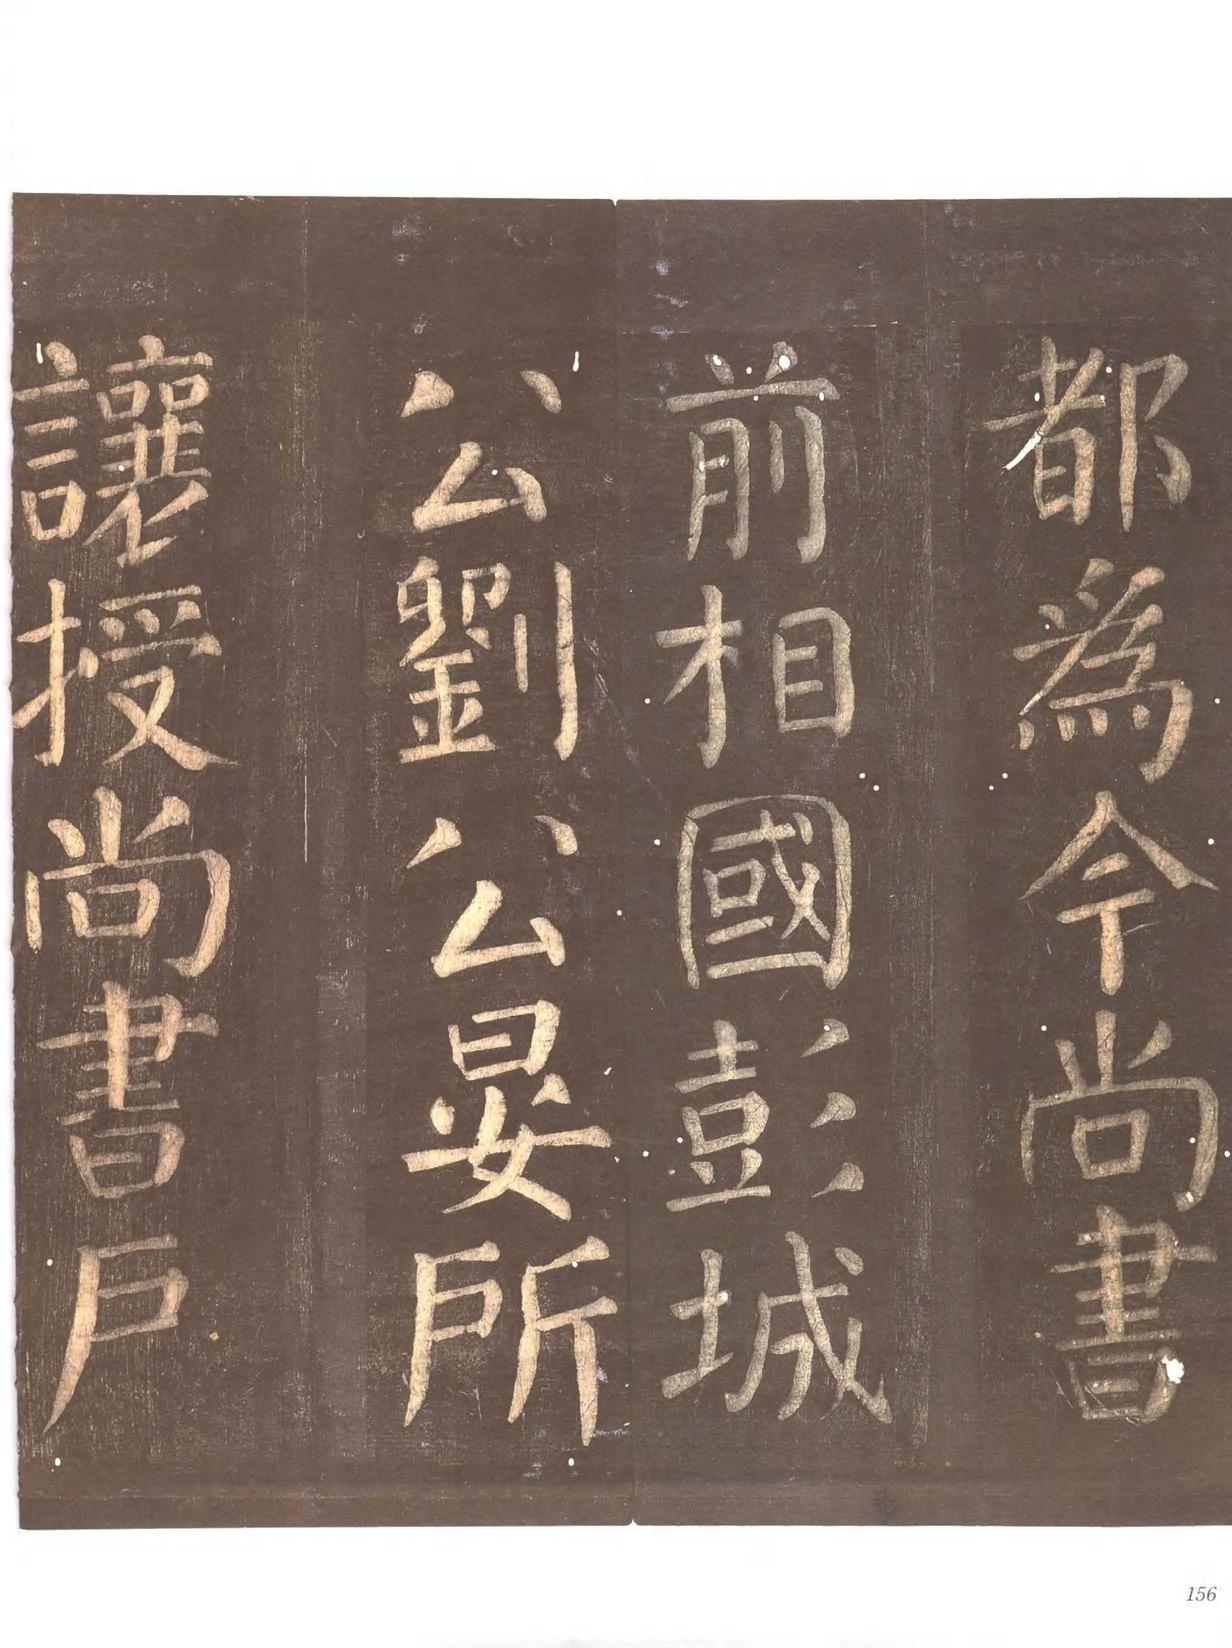 都為今尚書
前相國彭城
公劉公晏所
讓授尚書戶
156